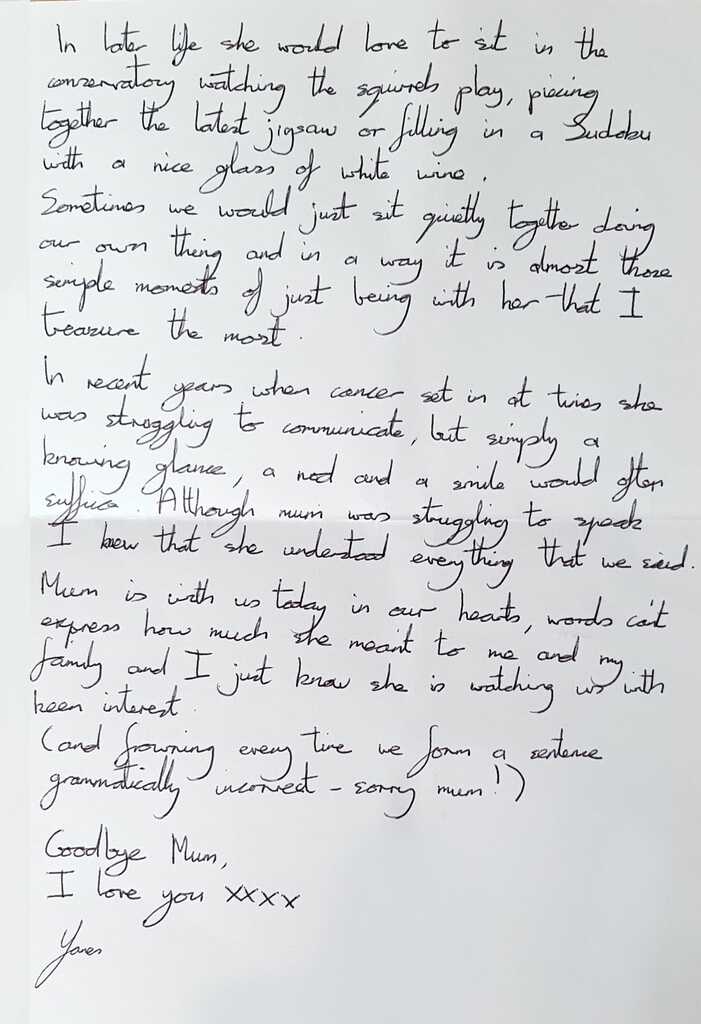 In later life she would love to sit in the
conservatory watching the squirrels play, piecing
together the latest jigsaw or filling in a Sudoku
with a nice glass of white wine.
Sometimes we would just sit quietly together doing
our own thing and in a way it is almost those
simple moments of just being with her that I
treasure the most.
In recent years when cancer set in at times she
was struggling to communicate, but simply a
knowing glance, a nod and a smile would often
suffice. Although mum was struggling to speak
I knew that she understood everything that we said.
Mum is with us today in our hearts, words can't
express how much she meant to me and my
family and I just know she is watching us with
keen interest.
(and frowning every time we form a sentence
grammatically incorrect - sorry mum!)
Goodbye Mum,
I love you xxxx